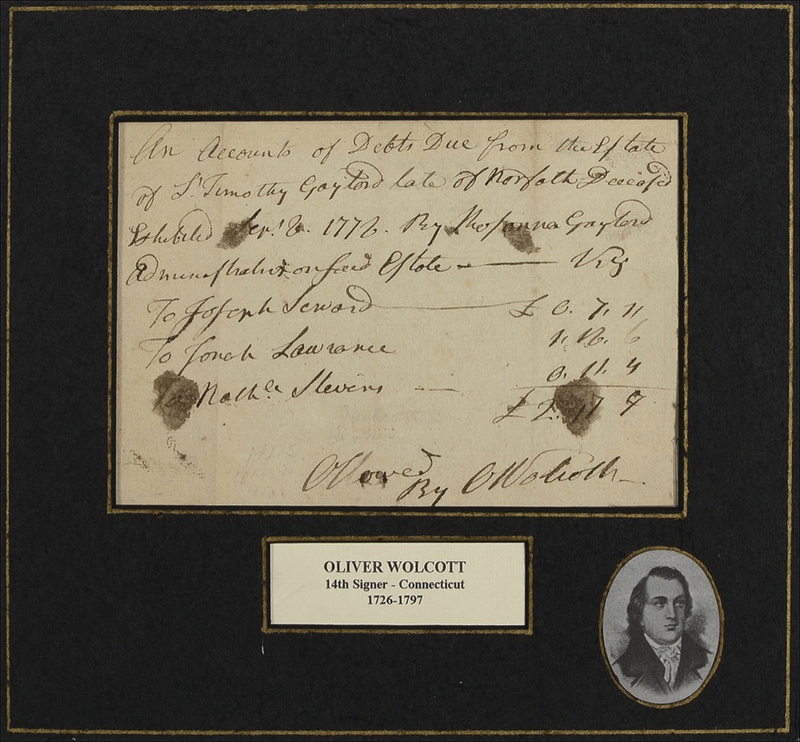 An Accounts of Debts Due from the Estate
of Lt. Timothy Gaylord late of Norfolk Deceas'd
Exhibited Sepr. 8. 1778. By Rhosanna Gaylord
Administratrix on said Estate — Viz
To Joseph Seward — £ 0. 7. 11
To Jonah Lawrance 1. 18. 6
To Nathll Stevens — 0. 11. 4
£ 2. 17 9
Allowed
By O Wolcott
OLIVER WOLCOTT
14th Signer - Connecticut
1726-1797